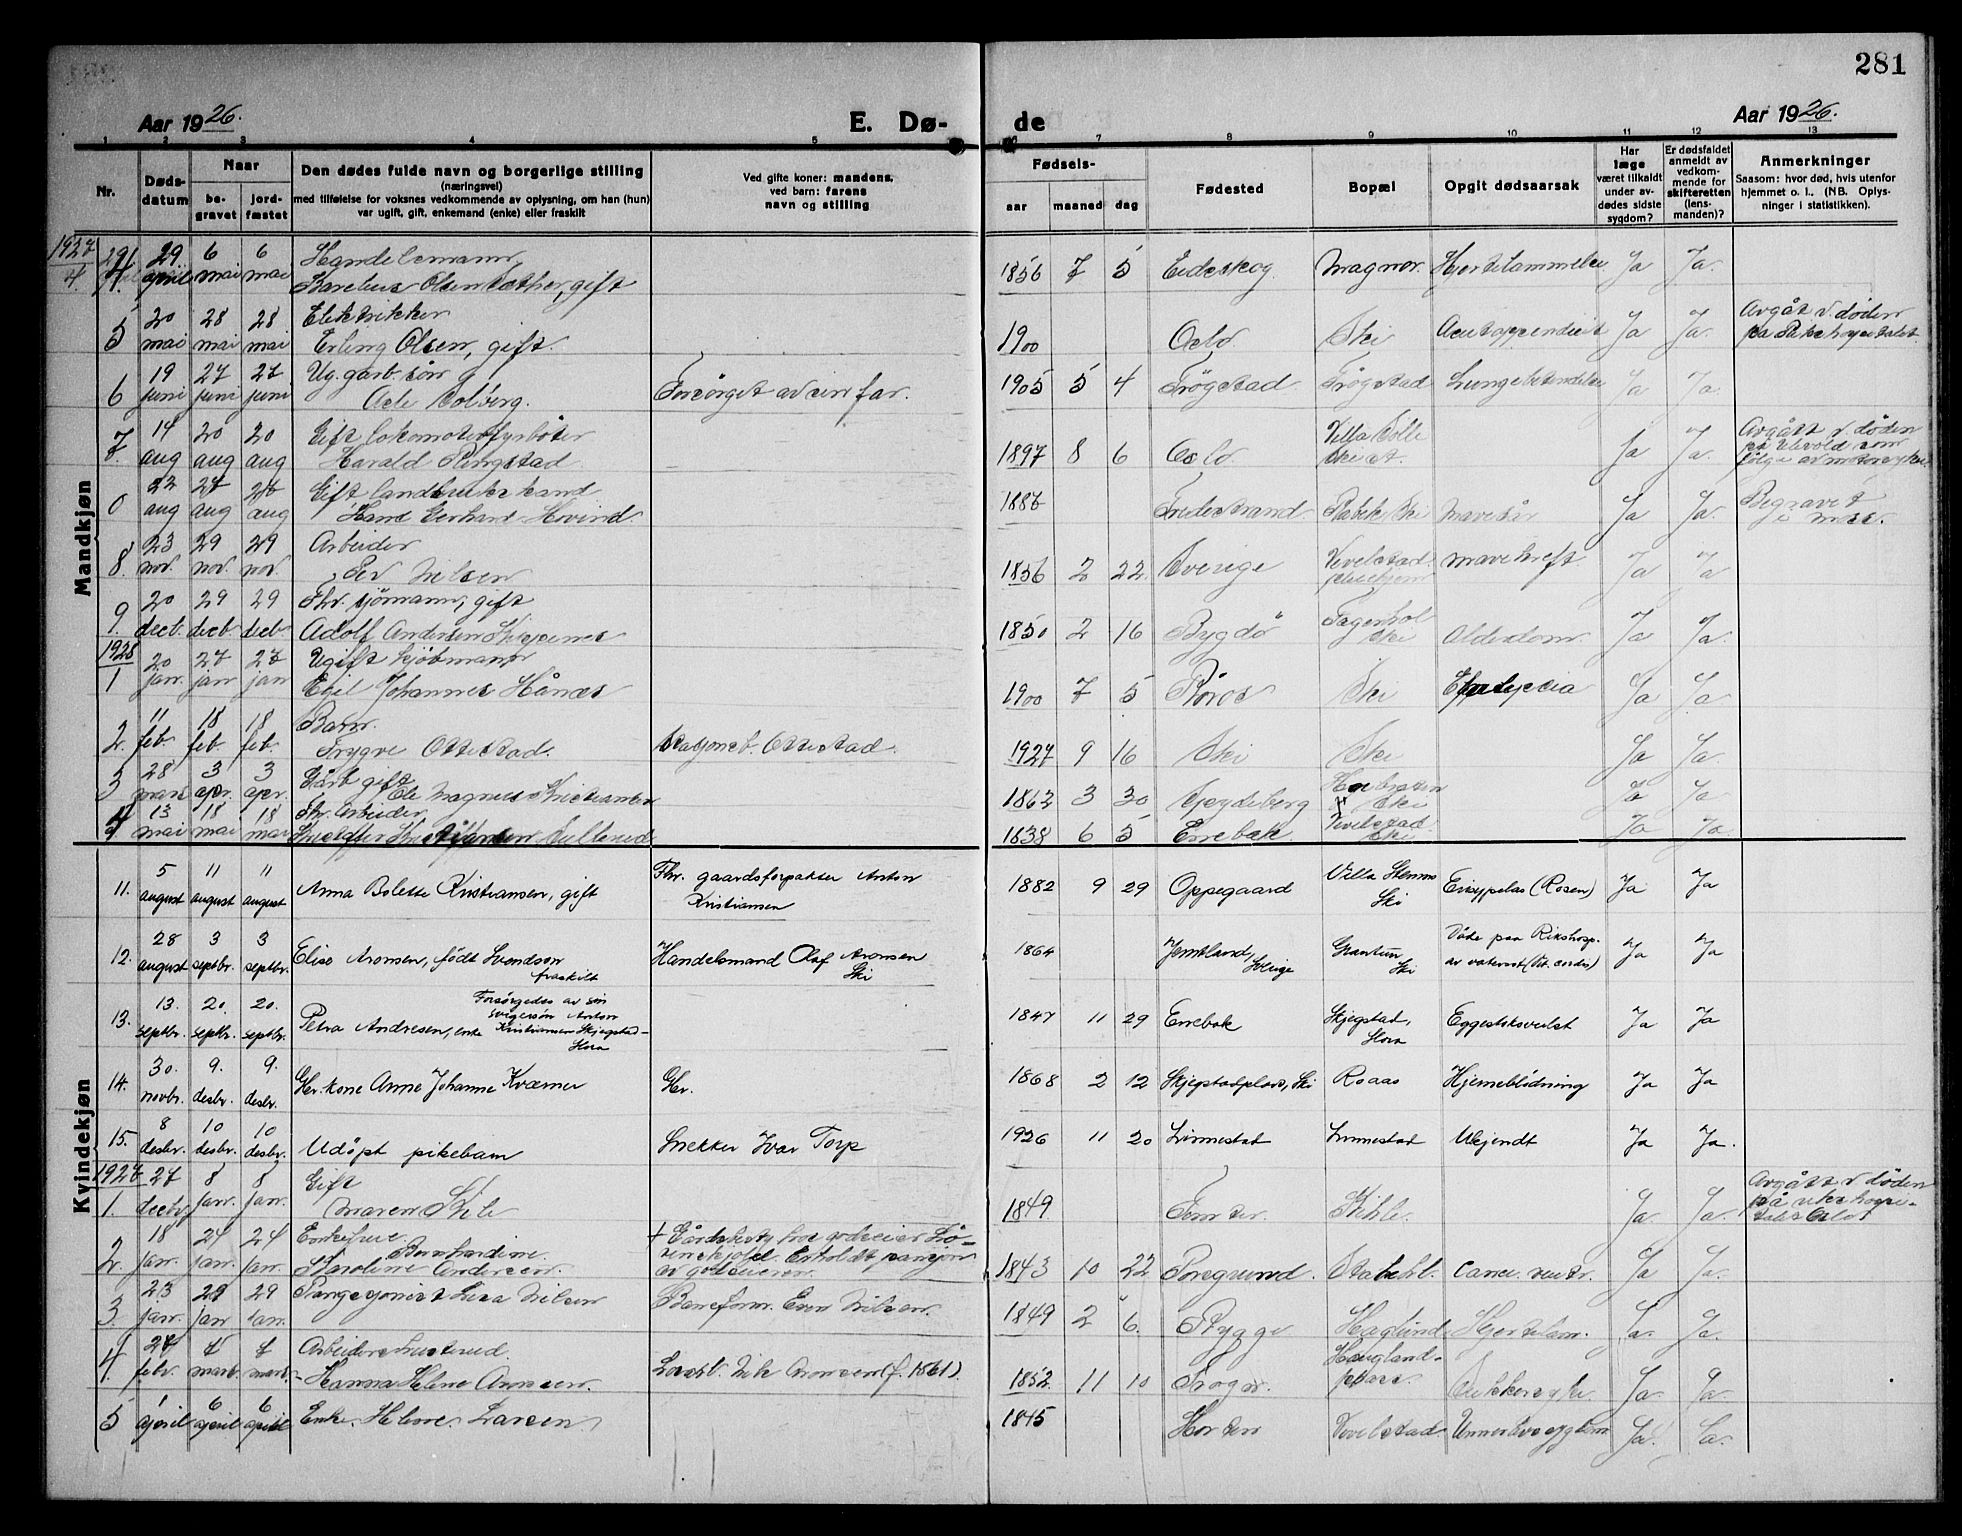 281
Aar 1926.
E. Dø-
de
Aar 1926.
1 2 3 4 5 6 7 8 9 10 11 12 13
Nr.
Døds-
datum
Naar
be-
gravet
jord-
fæstet
Den dødes fulde navn og borgerlige stilling
(næringsvei)
med tilføielse for voksnes vedkommende av oplysning, om han (hun)
var ugift, gift, enkemand (enke) eller fraskilt
Ved gifte koner: mandens,
ved barn: farens
navn og stilling
Fødsels-
aar maaned dag
Fødested
Bopæl
Opgit dødsaarsak
Har
læge
været tilkaldt
under av-
dødes sidste
sygdom?
Er dødsfaldet
anmeldt av
vedkom-
mende for
skifteretten
(lens-
manden)?
Anmerkninger
Saasom: hvor død, hvis utenfor
hjemmet o. l., (NB. Oplys-
ninger i statistikken).
Mandkjøn
1927
4. 29 april 6 mai 6 mai Handelsmann
Olsen Sæther, gift
1856 7 5 Eidskog Magnor Ja Ja.
5 20 mai 28 mai 28 mai Elektriker
Erling Olsen, gift.
1900 Oslo Ski Acut appendicit Ja Ja. Avgåt v. døden
pa Rikshospitalet
6 19 juni 27 juni 27 juni Ug. garb. søn
Solberg. Forsørget av sin far.
1905 5 4 Trøgstad Trøgstad Lungebetendelse Ja Ja.
7. 14 aug 20 aug 20 aug Gift lokomotivfyrbøter
Harald Ringstad
1897 8 6 Oslo Villa Solli
Ja Ja. Avgått v. døden
som
følge av motorsyke
0 22 aug 27 aug 27 aug Gift landbrukskand.
Hans Gerhard Hovind.
Fredrikstrand. Ski Mavesår Ja Ja. Begravet
i Moss.
8. 23 nov. 29 nov. 29 nov. Arbeider
Per Nilsen
1856 2 22 Sverige Vevelstad
pleiehjem Mavekreft Ja Ja
9. 20 decb. 29 decb. 29 decb. Fhv. sjömann, gift
Adolf Andersen
1850 2 16 Bygdø
Ski Alderdom. Ja Ja.
1928
1 20 jan. 27 jan 27 jan Ugift kjøbmann
Egil Johannes Hånes
1900 7 5 Röros Ski Ja Ja
2. 11 feb. 18 feb. 18 feb. Barn.
Trygve Ottestad. Stasjonsb. Ottestad.
1927 9 16 Ski Ski Ja Ja.
3 28 mars 3 apr. 3 apr. Gårb gift
Ole Magnus Kristiansen
1863 3 30 Spydeberg
Ski Ja Ja
4 13 mai 18 mai 18 mai Fhv. Arbeider
1838 6 5 Enebak Vevelstad
Ski Ja Ja.
Kvindekjøn
11. 5 august 11 august 11 august Anna Bolette Kristiansen, gift Fhv. gaardsforpakter Anton
Kristiansen
1882 9 29 Oppegaard Villa Stenmo
Ski Erisypelas (Rosen) Ja Ja
12. 28 august 3 septbr. 3 septbr. Elise Aronsen, født Svendsen
fraskilt Handelsmand Olaf Aronsen
Ski
1864 Jemtland,
Sverige Grantun
Ski Døde paa Rikshosp.
av vatersot (Vit. cordis) Ja Ja
13. 13. septbr. 20. septbr. 20. septbr. Petra Andresen, enke Forsørgedes av sin
svigersøn Anton
Kristiansen Skjegstad-
1847 11 29 Enebak Skjegstad,
Eggestoksvulst Ja Ja
14. 30. novbr. 9. desbr. 9. desbr. Gbr. kone Anne Johanne Kværner Gbr.
1868 2 12 Skjegstadplads, Ski Roaas Hjerneblødning Ja Ja
15. 8 desbr. 10 desbr. 10 desbr. Udøpt pikebarn Snekker Ivar Torp
1926 11 20 Finnestad Finnestad Ukjendt Ja Ja.
1927
1. 27 8 jan. 8 jan. Gift
Maren Skile
1849 Skihle. Ja Ja. Avgått v døden
på rikshospi-
talet Oslo
2. 18 jan. 24 jan. 24 jan. Enkefrue
Bernhardine
Karoline Andersen.
Erholdt pansjon
av godseieren.
1843 10 22 Porsgrund. Cance. ventr. Ja Ja.
3. 23 jan. 29 jan 29 jan. Lisa Nilsen Baneform. Nilsen
1849 2 6. Rygge Haglund Hjertelam. Ja. Ja.
4. 27 febr. 4 mars 4 mars. Arbeiderske
Hanna Helene Aronsen. Aronsen (f. 1861).
1852 11 10 Haugland-
plass. Sukkersyke. Ja. Ja.
5 1 april 6 april 6 april Enke Helene Larsen
1845 Horten Vevelstad Ja.